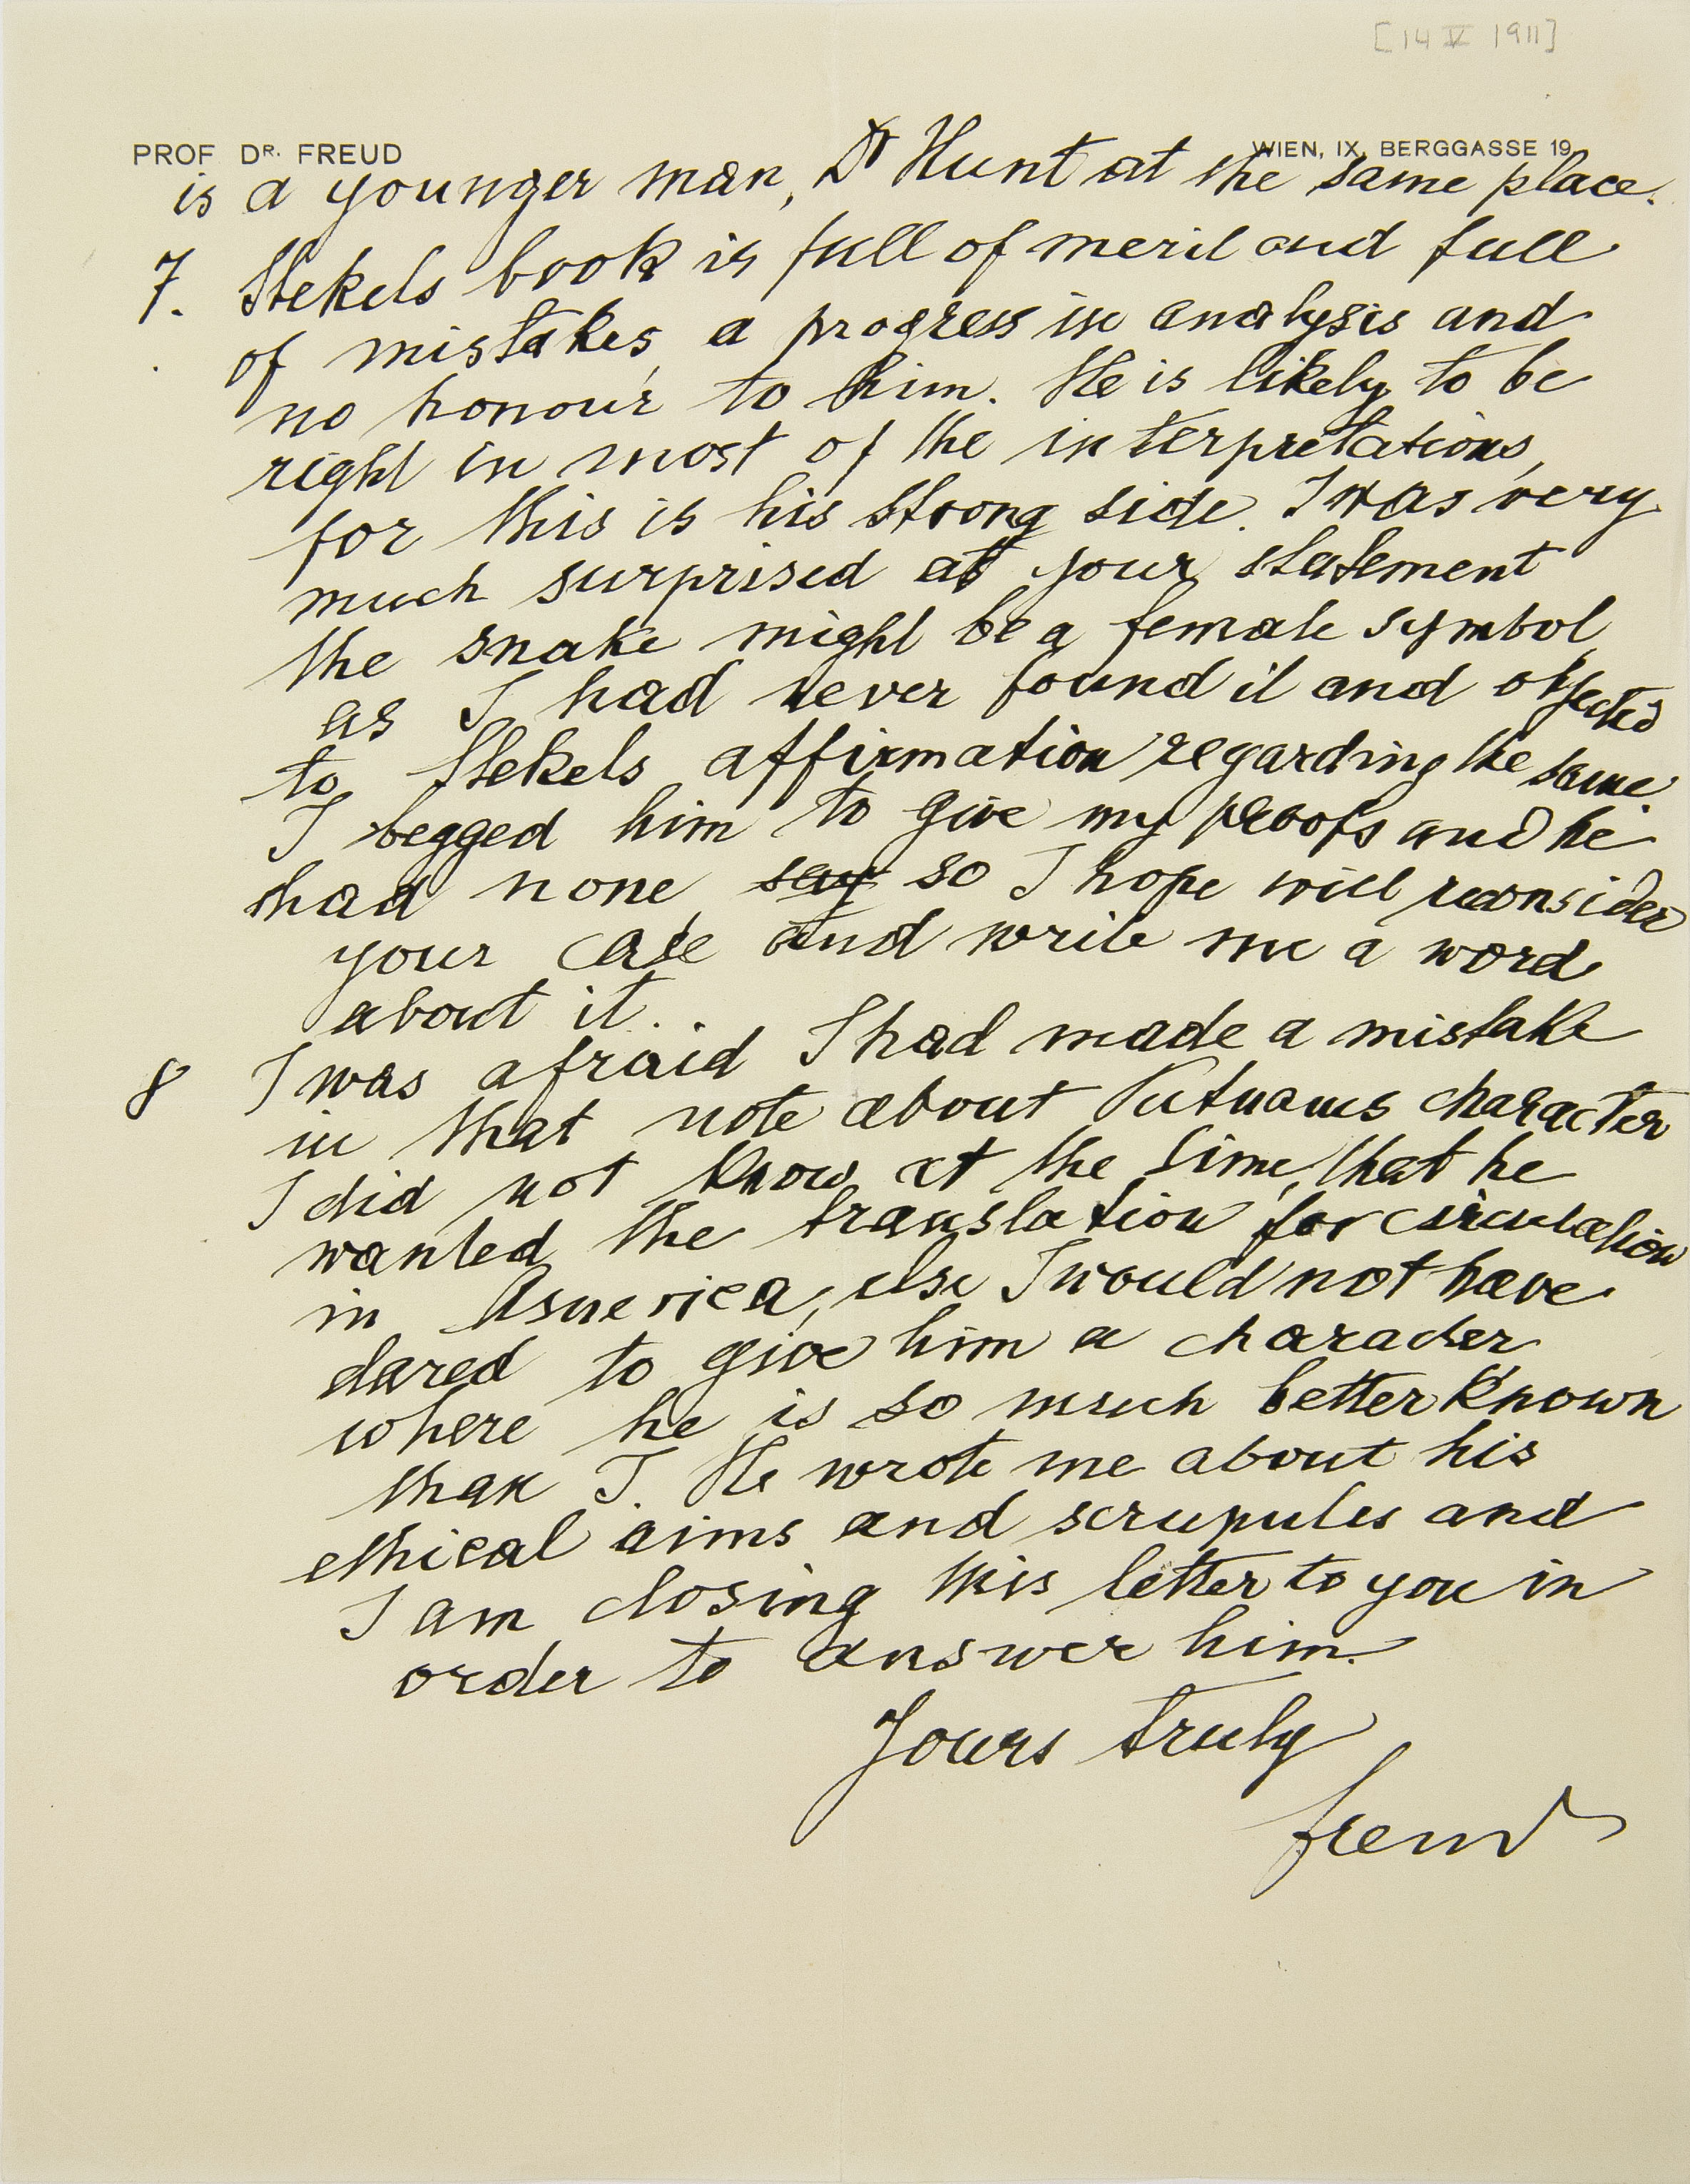 [14 V 1911]
PROF. DR. FREUD WIEN, IX., BERGGASSE 19.
is a younger man, Dr Hunt at the same place.
7. Stekels book is full of merit and full
of mistakes, a progress in analysis and
no honour to him. He is likely to be
right in most of the interpretations,
for this is his strong side. I was very
much surprised at your statement
the snake might be a female symbol,
as I had never found it and objected
to Stekels affirmation regarding the same.
I begged him to give my proofs and he
had none so I hope will reconsider
your case and write me a word
about it.
8 I was afraid I had made a mistake
in that note about Putnams character
I did not know at the time, that he
wanted the translation for circulation
in America, else I would not have
dared to give him a character
where he is so much better known
than I. He wrote me about his
ethical aims and scrupules and
I am closing this letter to you in
order to answer him.
Yours truly
Freud